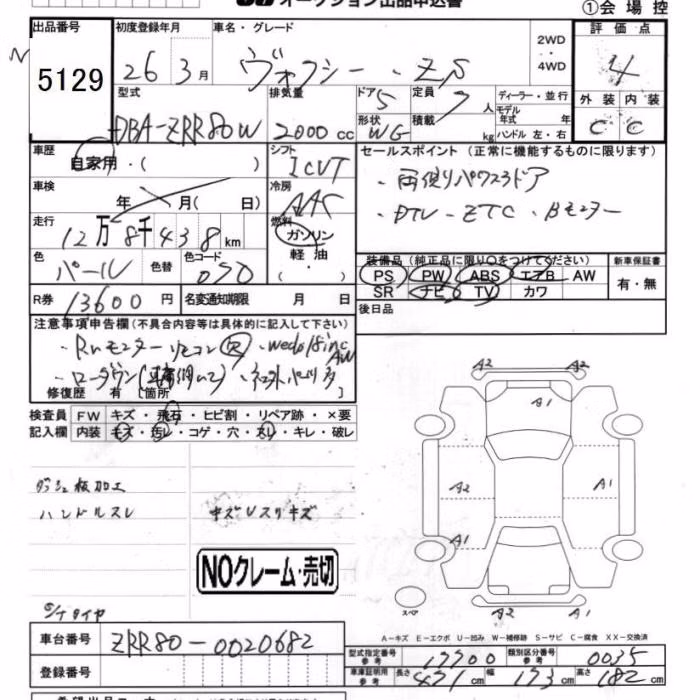 オークション出品申込書
①会場控
出品番号 初度登録年月 車名・グレード 評価点
5129 26年 3月 ヴォクシー・ZS 2WD・4WD 4
型式 排気量 ドア 5 定員 7人 ディーラー・並行 外装 内装
DBA-ZRR80W 2000cc 形状 WG 積載 kg モデル年式 年 C C
ハンドル 左・右
車歴 シフト セールスポイント(正常に機能するものに限ります)
自家用・( ) ICVT ・両側パワスラドア
車検 冷房 ・DTV - ETC・Bモニター
年 月( 日) AAC
走行 燃料
12万8千438km ガソリン 軽油・( )
装備品(純正品に限り○をつけてください) 新車保証書
色 色替 色コード PS PW ABS エアB AW 有・無
パール 070 SR ナビ TV カワ
R券 13600円 名変通知期限 月 日 後日品
注意事項申告欄(不具合内容等は具体的に記入して下さい)
・Rrモニターリモコン ・weds18inc AW
・ローダウン
修復歴 有 [箇所 ]
検査員 FW キズ・飛石・ヒビ割・リペア跡・×要
記入欄 内装 キズ・汚レ・コゲ・穴・スレ・キレ・破レ
A2 A2
A1
ダッシュ板加工 A2 A1
ハンドルスレ キズUスリキズ
A1
NOクレーム・売切
S/Tタイヤ スペア A2 A1
A-キズ E-エクボ U-凹み W-補修跡 S-サビ C-腐食 XX-交換済
車台番号 ZRR80-0020682
型式指定番号 参考 17700 類別区分番号 参考 0035
登録番号 車庫証明用 参考 長さ 471cm 幅 173cm 高さ 182cm
希望出品コーナー